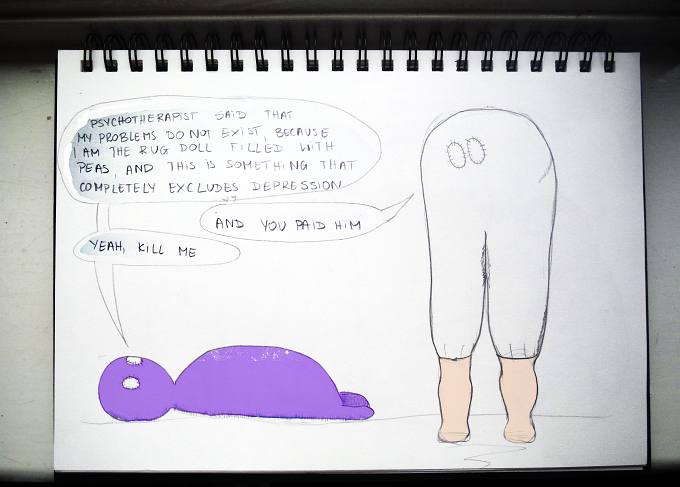 PSYCHOTHERAPIST SAID THAT
MY PROBLEMS DO NOT EXIST, BECAUSE
I AM THE RUG DOLL FILLED WITH
PEAS, AND THIS IS SOMETHING THAT
COMPLETELY EXCLUDES DEPRESSION
AND YOU PAID HIM
YEAH, KILL ME